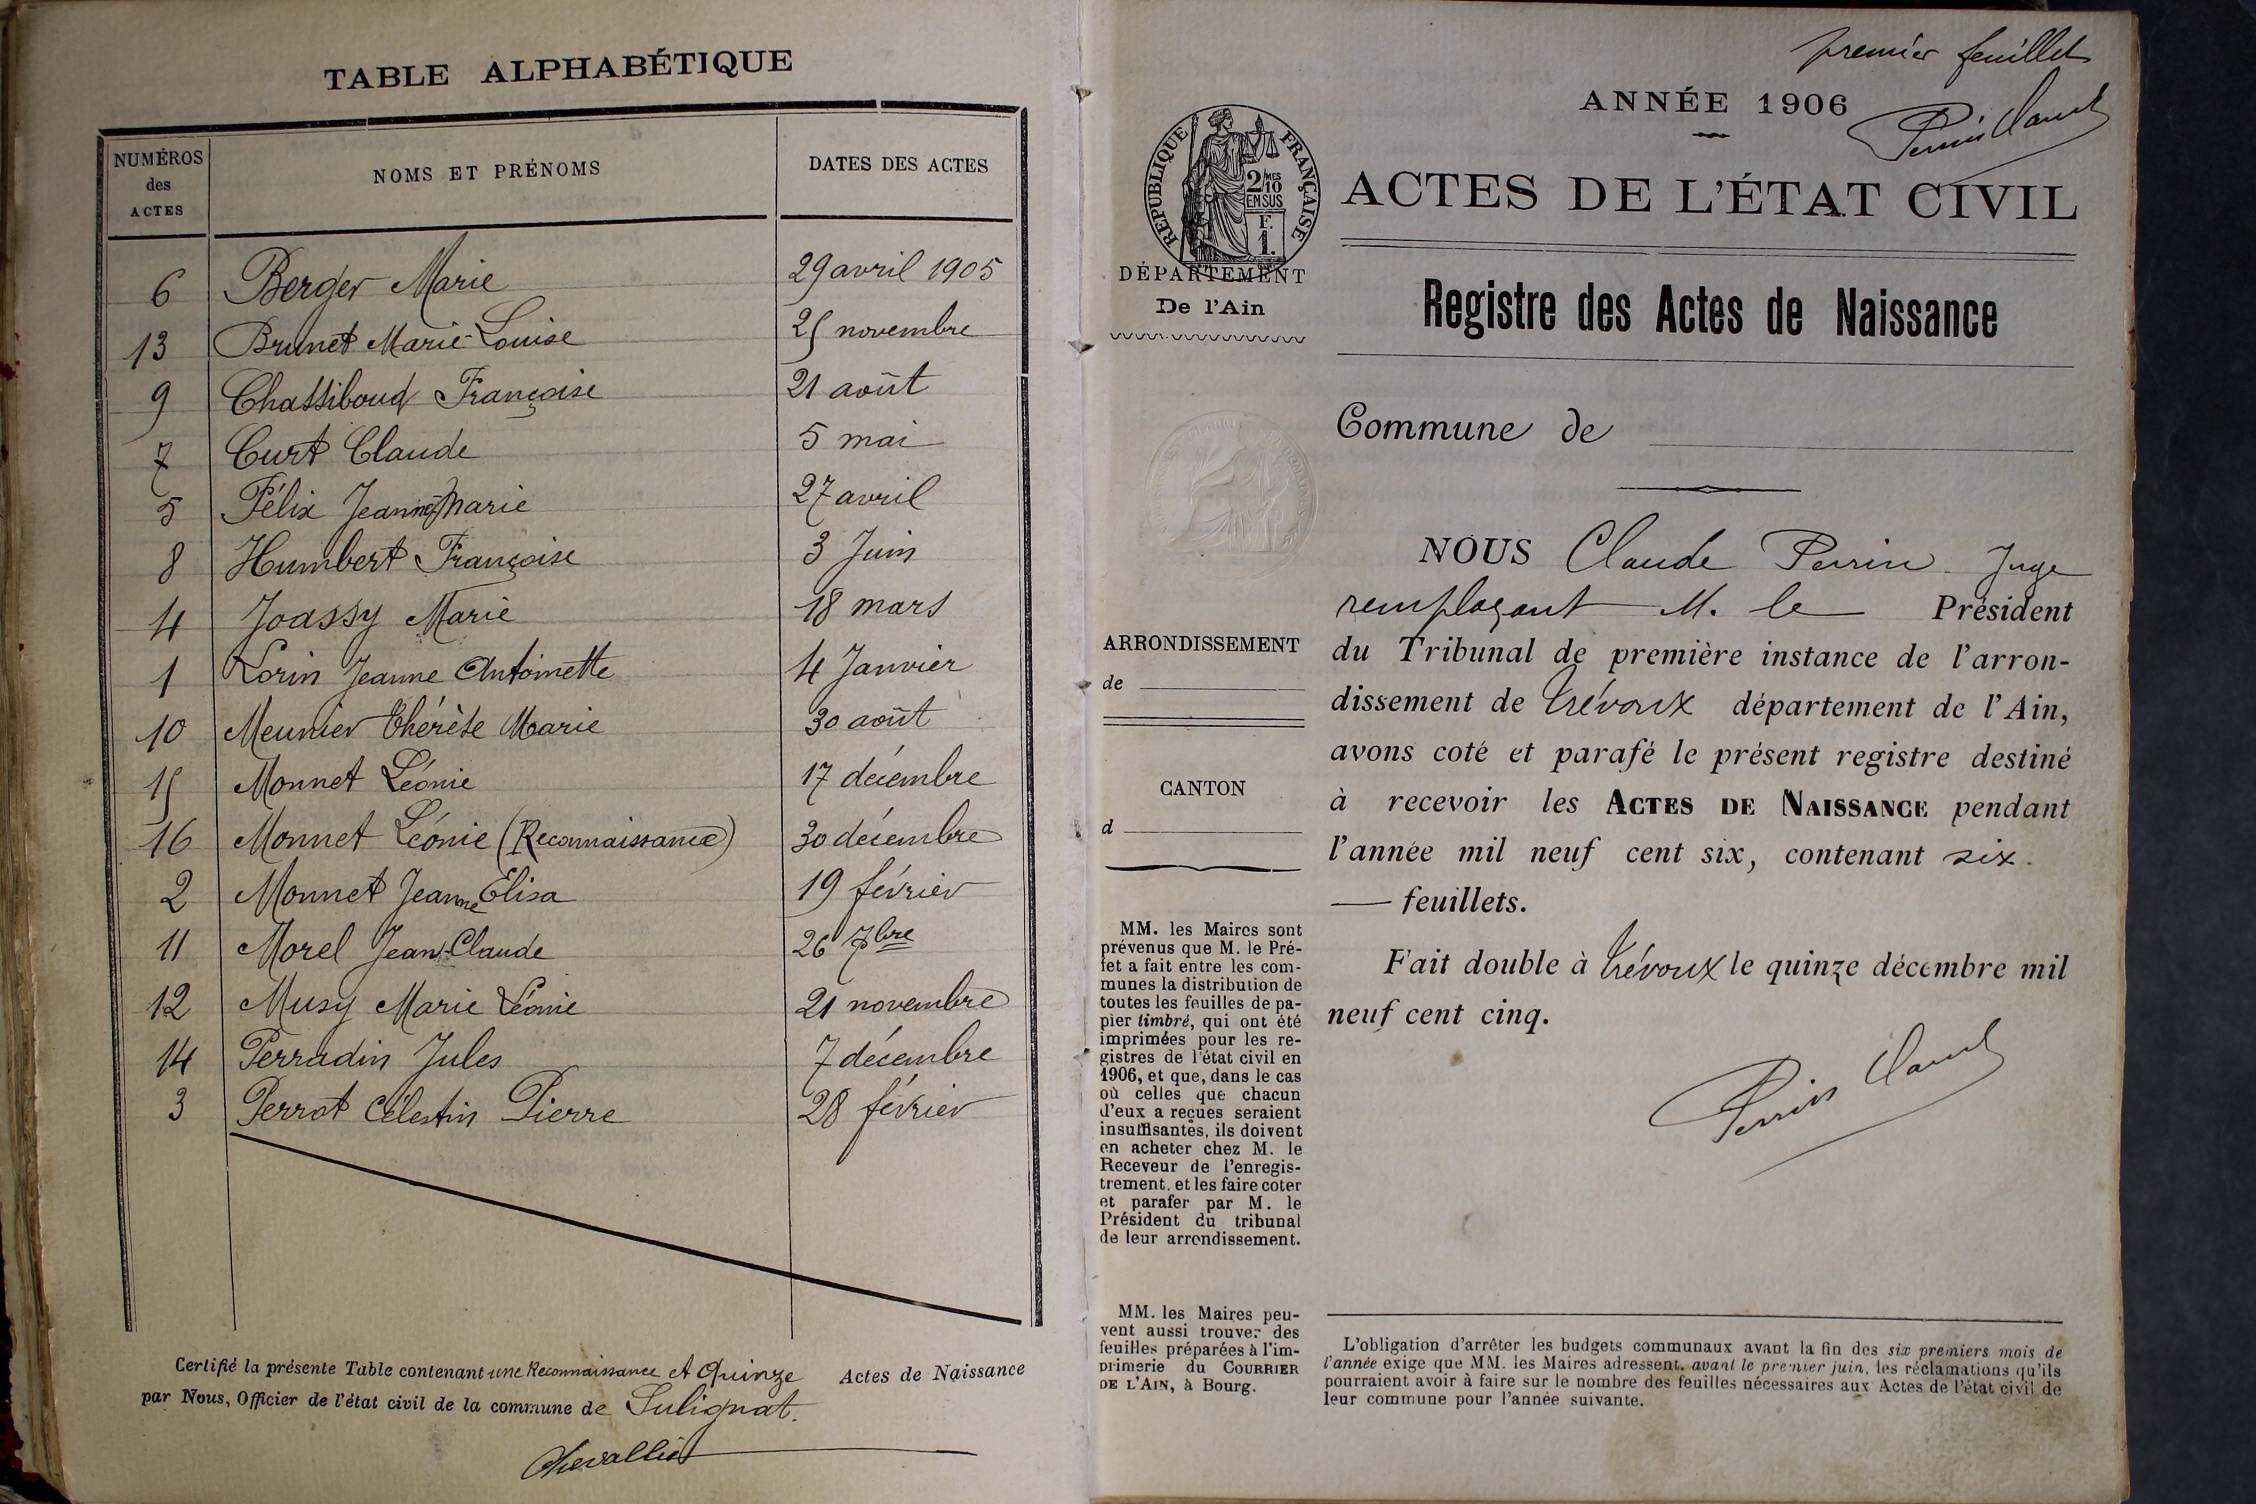 TABLE ALPHABÉTIQUE
NUMÉROS des ACTES | NOMS ET PRÉNOMS | DATES DES ACTES
6 Berger Marie 29 avril 1905
13 Brunet Marie-Louise 25 novembre
9 Chassiboud Françoise 21 août
7 Curt Claude 5 mai
5 Félix Jeanne-Marie 27 avril
8 Humbert Françoise 3 Juin
4 Joassy Marie 18 mars
1 Lorin Jeanne Antoinette 4 Janvier
10 Meunier Thérèse Marie 30 août
15 Monnet Léonie 17 décembre
16 Monnet Léonie (Reconnaissance) 30 décembre
2 Monnet Jeanne Elisa 19 février
11 Morel Jean-Claude 26 7bre
12 Musy Marie Léonie 21 novembre
14 Perradin Jules 7 décembre
3 Perrot Célestin Pierre 28 février
Certifié la présente Table contenant une Reconnaissance et Quinze Actes de Naissance
par Nous, Officier de l'état civil de la commune de Sulignat.
Chevallier
premier feuillet
ANNÉE 1906
Perrin Claude
RÉPUBLIQUE FRANÇAISE
2/10 MES
EN SUS
F.
1.
ACTES DE L'ÉTAT CIVIL
DÉPARTEMENT
De l'Ain
Registre des Actes de Naissance
Commune de
NOUS Claude Perrin Juge
remplaçant M. le Président
du Tribunal de première instance de l'arron-
dissement de Trévoux département de l'Ain,
avons coté et parafé le présent registre destiné
à recevoir les ACTES DE NAISSANCE pendant
l'année mil neuf cent six, contenant six
feuillets.
Fait double à Trévoux le quinze décembre mil
neuf cent cinq.
Perrin Claude
ARRONDISSEMENT
de
CANTON
d
MM. les Maires sont
prévenus que M. le Pré-
fet a fait entre les com-
munes la distribution de
toutes les feuilles de pa-
pier timbré, qui ont été
imprimées pour les re-
gistres de l'état civil en
1906, et que, dans le cas
où celles que chacun
d'eux a reçues seraient
insuffisantes, ils doivent
en acheter chez M. le
Receveur de l'enregis-
trement, et les faire coter
et parafer par M. le
Président du tribunal
de leur arrondissement.
MM. les Maires peu-
vent aussi trouver des
feuilles préparées à l'im-
primerie du COURRIER
DE L'AIN, à Bourg.
L'obligation d'arrêter les budgets communaux avant la fin des six premiers mois de
l'année exige que MM. les Maires adressent, avant le premier juin, les réclamations qu'ils
pourraient avoir à faire sur le nombre des feuilles nécessaires aux Actes de l'état civil de
leur commune pour l'année suivante.